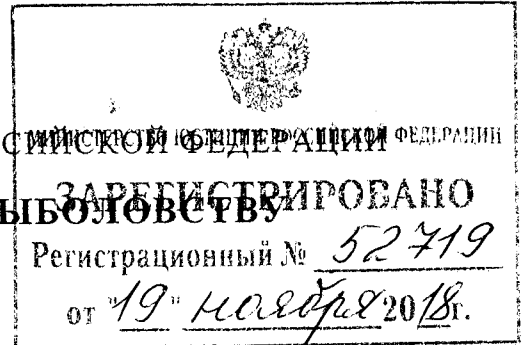 МИНИСТЕРСТВО ЮСТИЦИИ РОССИЙСКОЙ ФЕДЕРАЦИИ
СИЙСКОЙ ФЕДЕРАЦИИ
ЗАРЕГИСТРИРОВАНО
ЫБОЛОВСТВУ
Регистрационный № 52719
от "19" ноября 2018г.